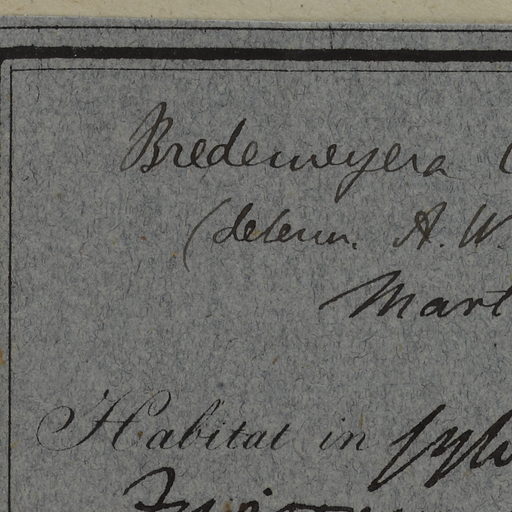 Bredemeyera
(determ. A. W.
Mart
Habitat in sylv